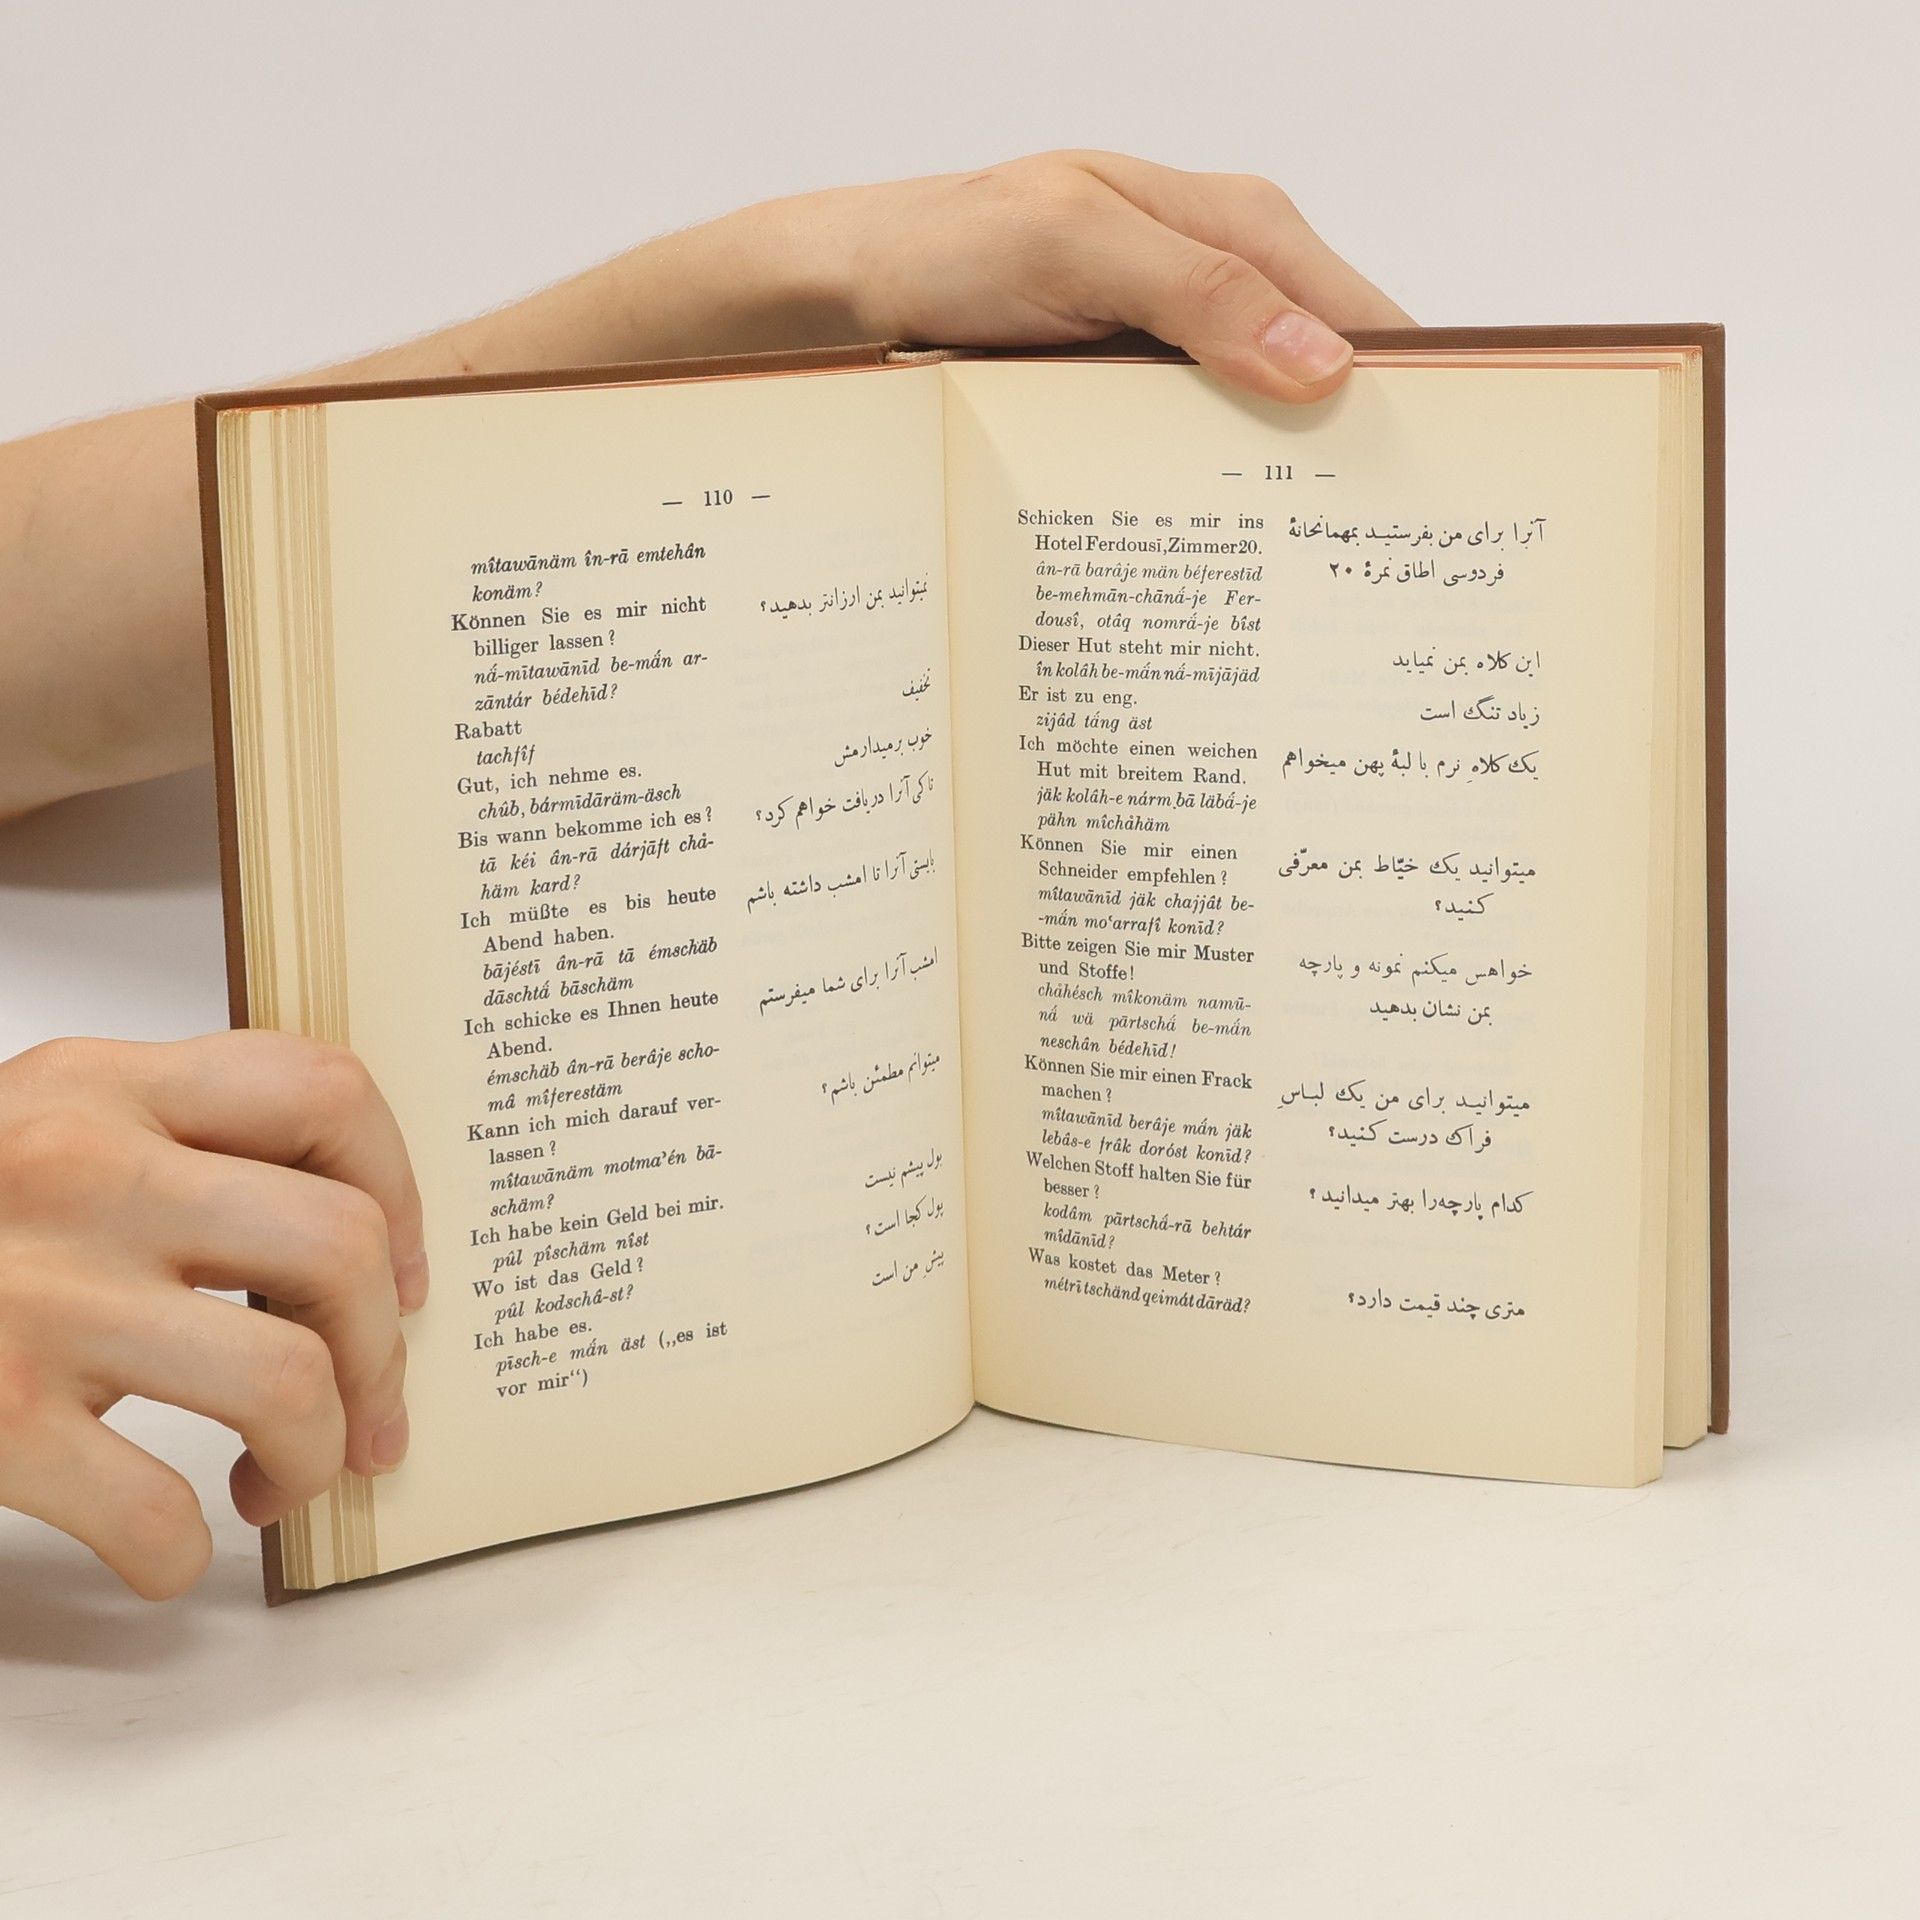 — 110 —
mîtawānäm în-rā emtehân
konäm?
Können Sie es mir nicht
billiger lassen?
nā́-mītawānīd be-mä́n ar-
zāntár bédehīd?
نمیتوانید بمن ارزانتر بدهید؟
Rabatt
tachfîf
تخفیف
Gut, ich nehme es.
chûb, bármīdāräm-äsch
خوب برمیدارمش
Bis wann bekomme ich es?
tā kéi ân-rā dárjāft chå-
häm kard?
تاکی آنرا دریافت خواهم کرد؟
Ich müßte es bis heute
Abend haben.
bājéstī ân-rā tā émschäb
dāschtä́ bāschäm
بایستی آنرا تا امشب داشته باشم
Ich schicke es Ihnen heute
Abend.
émschäb ân-rā berâje scho-
mâ mîferestäm
امشب آنرا برای شما میفرستم
Kann ich mich darauf ver-
lassen?
mîtawānäm motma’én bā-
schäm?
میتوانم مطمئن باشم؟
Ich habe kein Geld bei mir.
pûl pîschäm nîst
پول پیشم نیست
Wo ist das Geld?
pûl kodschâ-st?
پول کجا است؟
Ich habe es.
pīsch-e mä́n äst („es ist
vor mir“)
پیشِ من است
— 111 —
Schicken Sie es mir ins
Hotel Ferdousī, Zimmer 20.
ân-rā barâje män béferestīd
be-mehmān-chānä́-je Fer-
dousî, otâq nomrä́-je bîst
آنرا برای من بفرستید بمهمانخانهٔ
فردوسی اطاق نمرهٔ ۲۰
Dieser Hut steht mir nicht.
în kolâh be-mä́n nä́-mījājäd
این کلاه بمن نمیاید
Er ist zu eng.
zijâd tä́ng äst
زیاد تنگ است
Ich möchte einen weichen
Hut mit breitem Rand.
jäk kolâh-e nárm bā läbä́-je
pähn mîchåhäm
یک کلاهِ نرم با لبهٔ پهن میخواهم
Können Sie mir einen
Schneider empfehlen?
mîtawānīd jäk chajjât be-
-mä́n mo‘arrafî konīd?
میتوانید یک خیّاط بمن معرّفی
کنید؟
Bitte zeigen Sie mir Muster
und Stoffe!
chåhésch mîkonäm namū-
nä́ wä pārtschä́ be-mä́n
neschân bédehīd!
خواهس میکنم نمونه و پارچه
بمن نشان بدهید
Können Sie mir einen Frack
machen?
mîtawānīd berâje mä́n jäk
lebâs-e frâk doróst konīd?
میتوانید برای من یک لباسِ
فراک درست کنید؟
Welchen Stoff halten Sie für
besser?
kodâm pārtschä́-rā behtár
mîdānīd?
کدام پارچه‌را بهتر میدانید؟
Was kostet das Meter?
métrī tschänd qeimát dāräd?
متری چند قیمت دارد؟